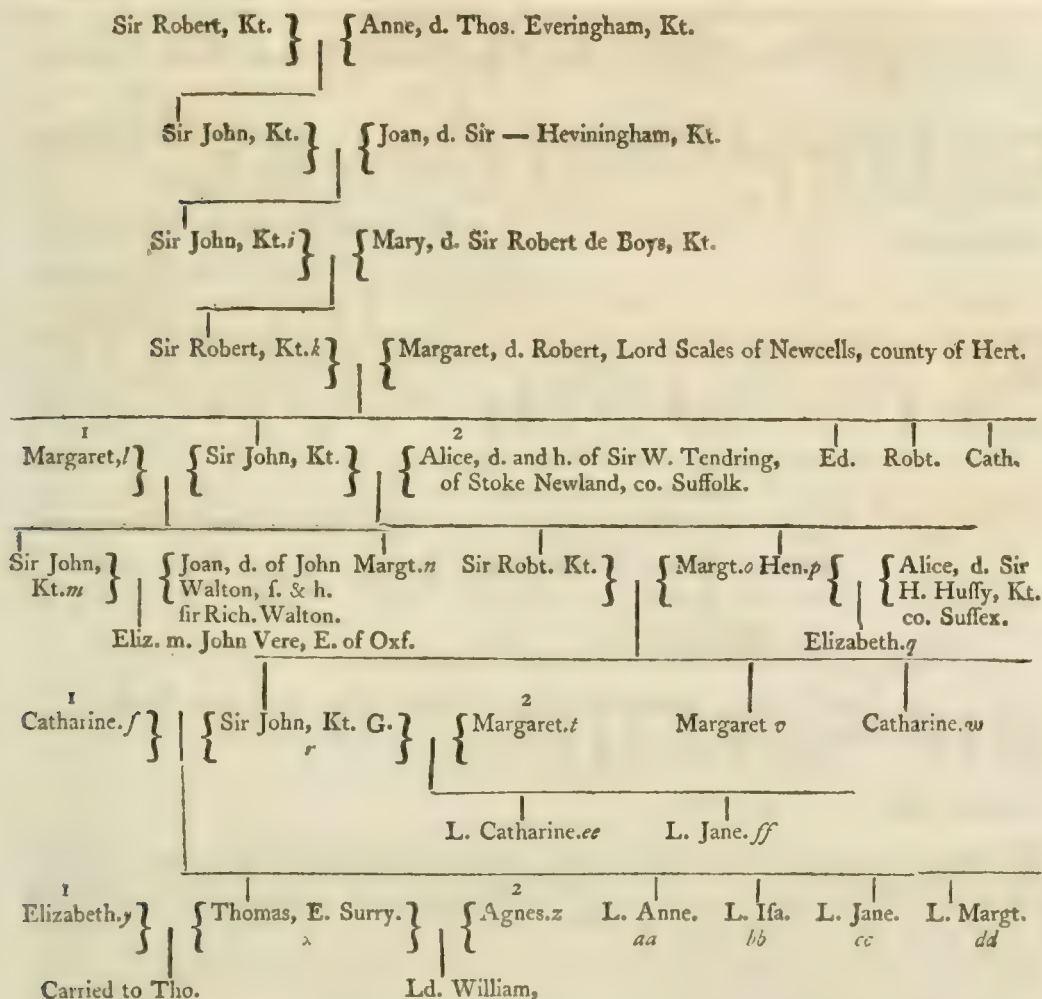 Sir Robert, Kt. } { Anne, d. Thos. Everingham, Kt.
Sir John, Kt. } { Joan, d. Sir — Heviningham, Kt.
Sir John, Kt.i } { Mary, d. Sir Robert de Boys, Kt.
Sir Robert, Kt.k } { Margaret, d. Robert, Lord Scales of Newcells, county of Hert.
1 2
Margaret,l } { Sir John, Kt. } { Alice, d. and h. of Sir W. Tendring, Ed. Robt. Cath.
of Stoke Newland, co. Suffolk.
Sir John, } { Joan, d. of John Margt.n Sir Robt. Kt. } { Margt.o Hen.p } { Alice, d. Sir
Kt.m Walton, ſ. & h. H. Huſſy, Kt.
ſir Rich. Walton. co. Suſſex.
Eliz. m. John Vere, E. of Oxf. Elizabeth.q
1 2
Catharine.ſ } { Sir John, Kt. G. } { Margaret.t Margaret v Catharine.w
r
L. Catharine.ee L. Jane.ff
1 2
Elizabeth.y } { Thomas, E. Surry. } { Agnes.z L. Anne. L. Iſa. L. Jane. L. Margt.
x aa bb cc dd
Carried to Tho. Ld. William,